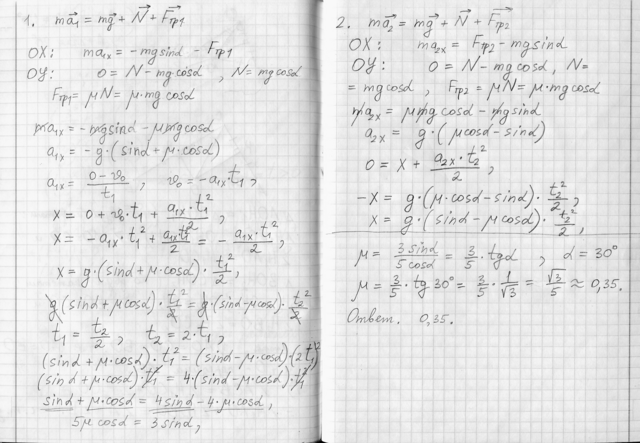 1. ma⃗₁ = mg⃗ + N⃗ + F⃗тр1
OX: ma₁ₓ = -mgsinα - Fтр1
OY: 0 = N - mgcosα, N = mgcosα
Fтр1 = μN = μ·mgcosα
ma₁ₓ = -mgsinα - μmgcosα
a₁ₓ = -g·(sinα + μ·cosα)
a₁ₓ = (0 - v₀)/t₁, v₀ = -a₁ₓ·t₁,
x = 0 + v₀·t₁ + a₁ₓ·t₁²/2,
x = -a₁ₓ·t₁² + a₁ₓt₁²/2 = -a₁ₓ·t₁²/2,
x = g·(sinα + μ·cosα)·t₁²/2,
g(sinα + μcosα)·t₁²/2 = g·(sinα - μcosα)·t₂²/2
t₁ = t₂/2, t₂ = 2·t₁,
(sinα + μ·cosα)·t₁² = (sinα - μ·cosα)·(2t₁)²
(sinα + μ·cosα)·t₁² = 4·(sinα - μ·cosα)·t₁²
sinα + μ·cosα = 4sinα - 4·μ·cosα,
5μcosα = 3sinα,
2. ma⃗₂ = mg⃗ + N⃗ + F⃗тр2
OX: ma₂ₓ = Fтр2 - mgsinα
OY: 0 = N - mgcosα, N =
= mgcosα, Fтр2 = μN = μ·mgcosα
ma₂ₓ = μmgcosα - mgsinα
a₂ₓ = g·(μcosα - sinα)
0 = x + a₂ₓ·t₂²/2,
-x = g·(μ·cosα - sinα)·t₂²/2,
x = g·(sinα - μcosα)·t₂²/2,
μ = 3sinα/5cosα = 3/5·tgα, α = 30°
μ = 3/5·tg30° = 3/5·1/√3 = √3/5 ≈ 0,35.
Ответ. 0,35.